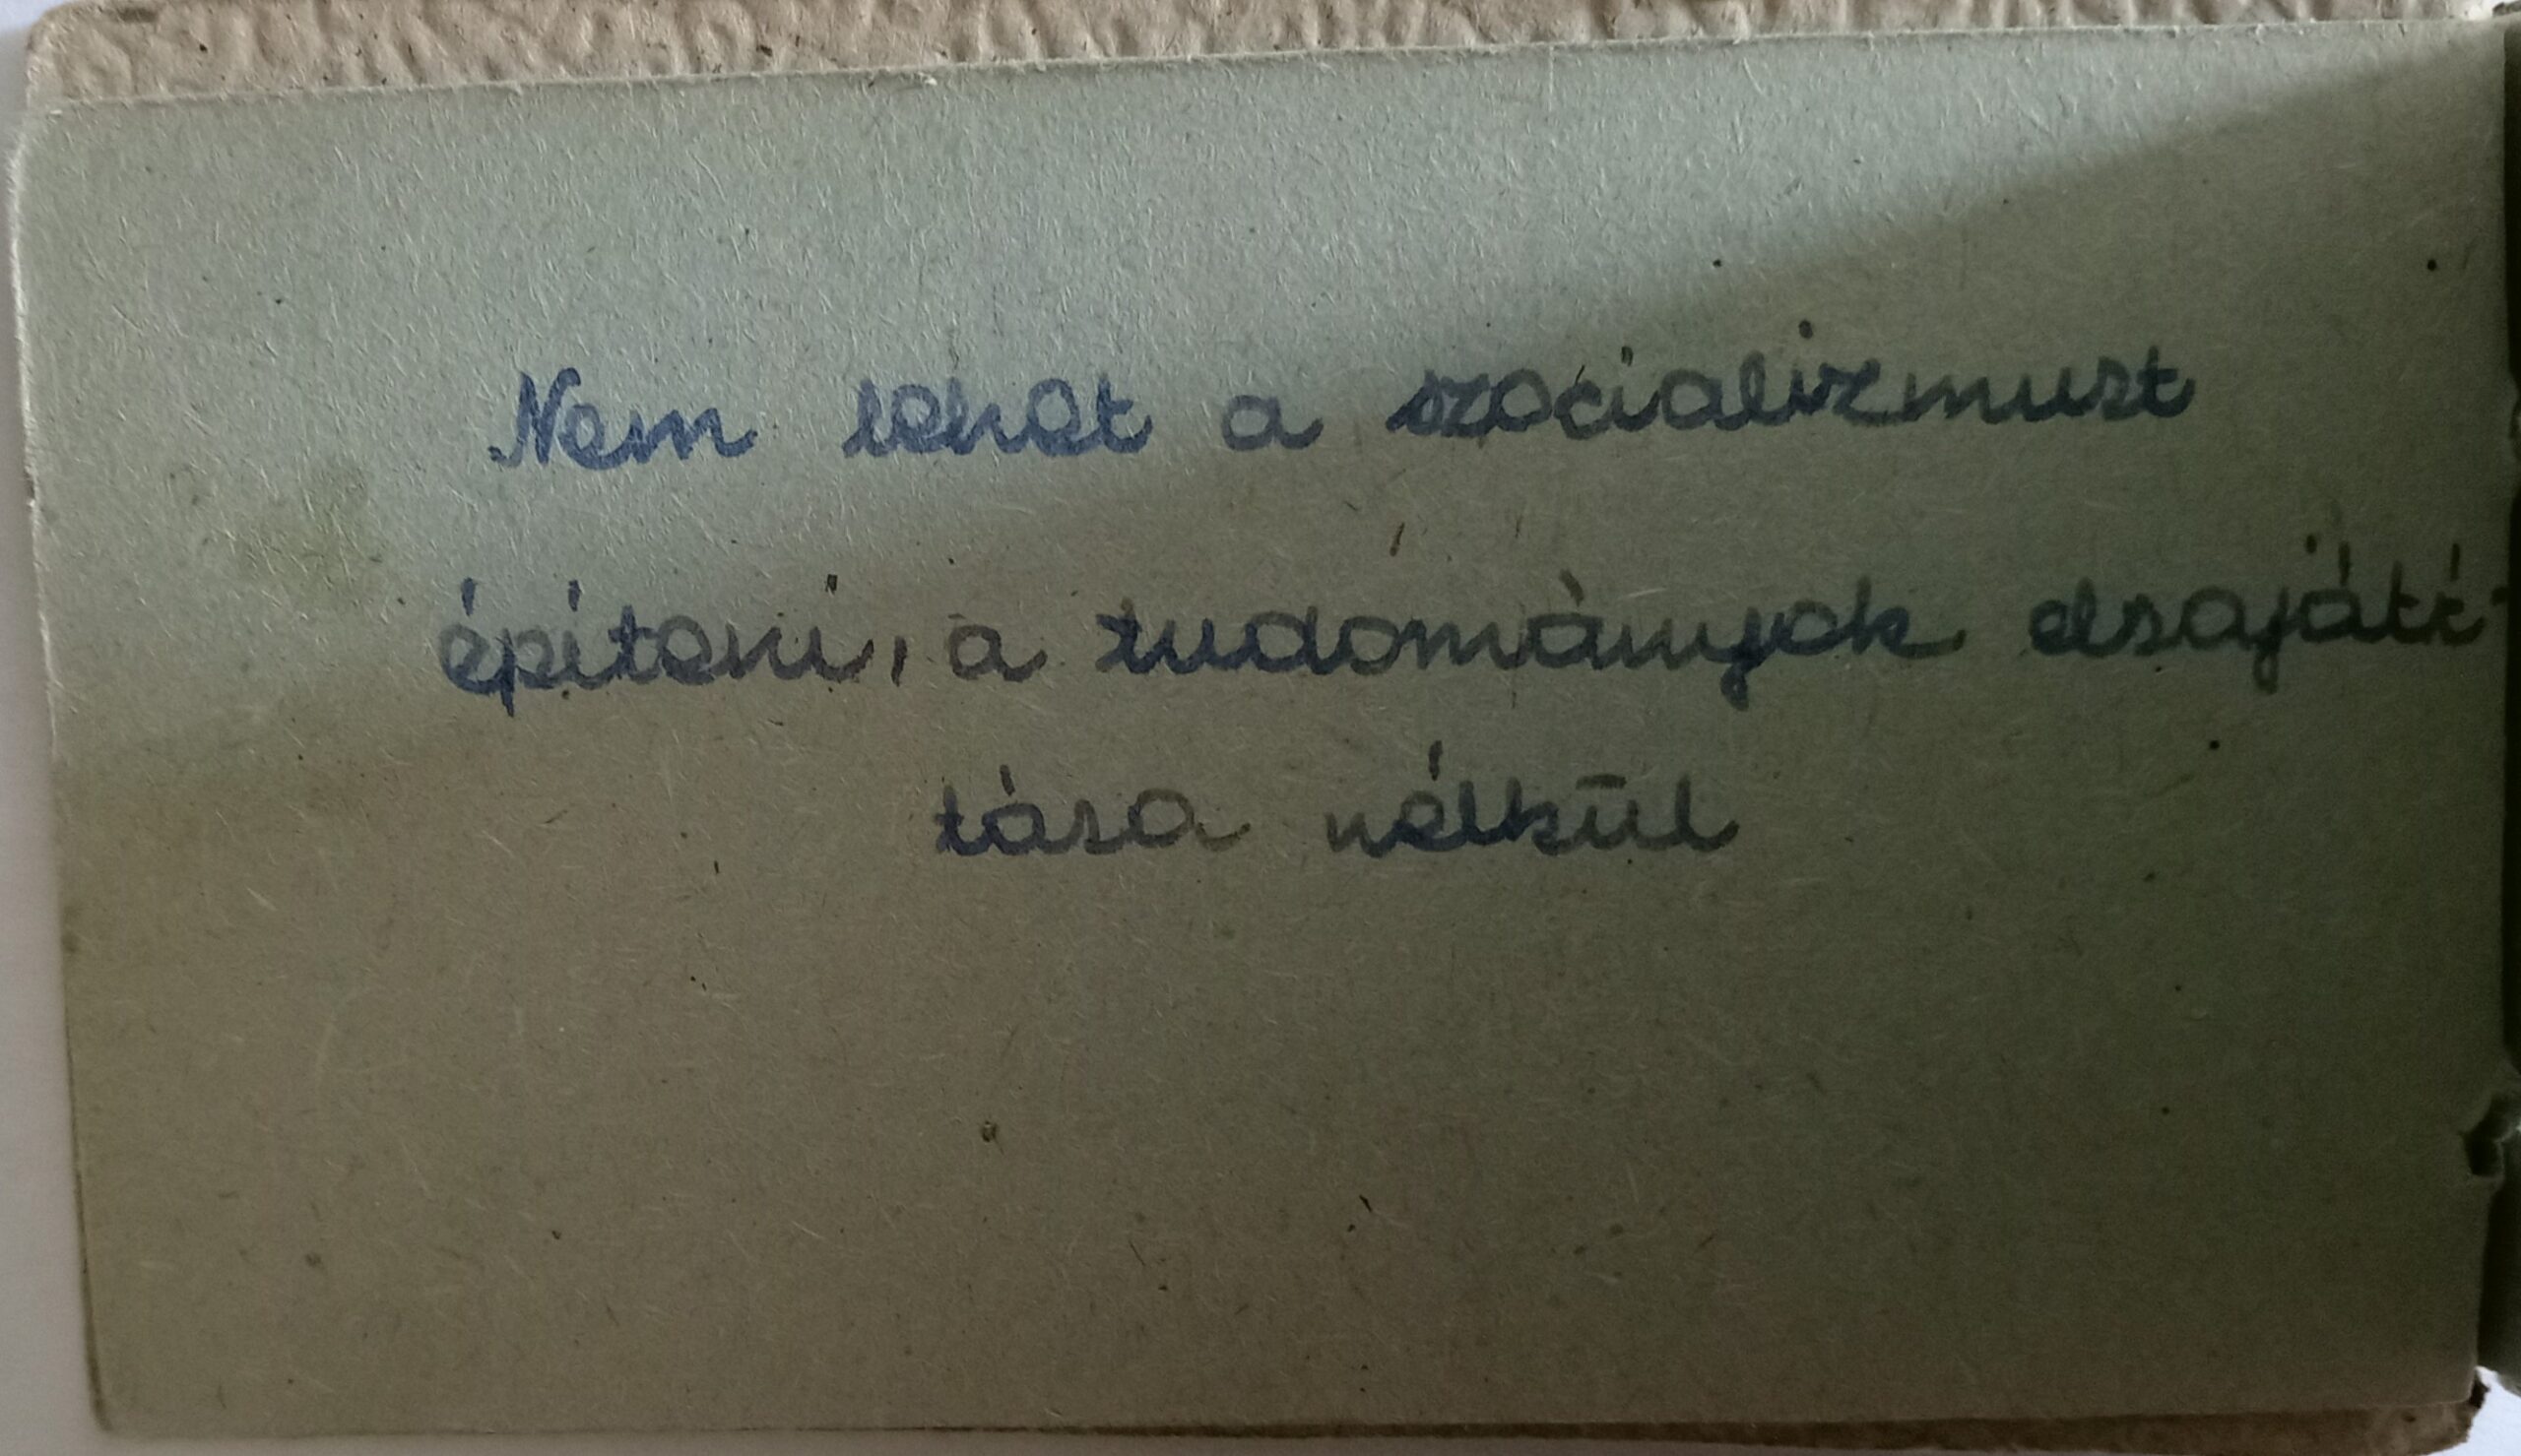 Nem lehet a szocializmust
építeni, a tudományok elsajátí-
tása nélkül